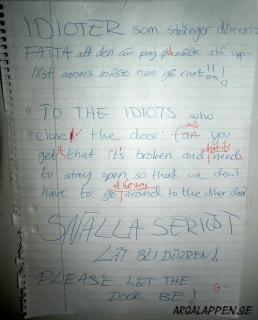 IDIOTER som stänger dörren:
FATTA att den är paj och måste stå upp-
låst annars måste man gå runt!!!
TO THE IDIOTS who
close the door: Can you
get it that it's broken and needs
to stay open, so that we don't
have to go around to the other door
all the way
SNÄLLA SERIÖST
LÅT BLI DÖRREN!
PLEASE LET THE
DOOR BE!
G-
ARGALAPPEN.SE